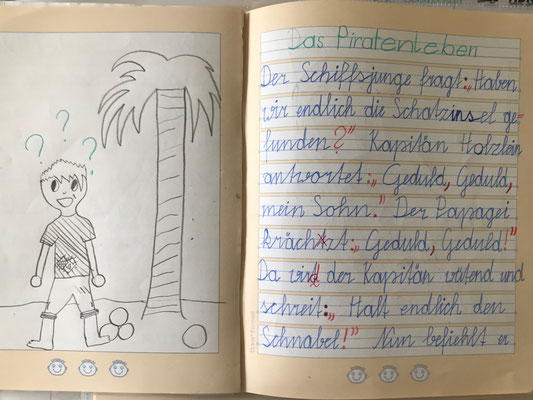 Das Piratenleben
Der Schiffsjunge fragt: „Haben
wir endlich die Schatzinsel ge=
funden?" Kapitän Holzlein
antwortet: „Geduld, Geduld,
mein Sohn." Der Papagei
krächzt: „Geduld, Geduld!"
Da wird der Kapitän wütend und
schreit: „Halt endlich den
Schnabel!" Nun befiehlt er